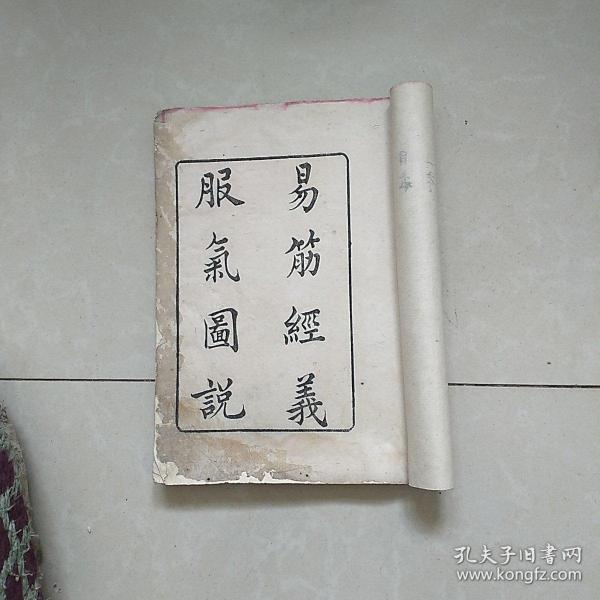 易筋經義
服氣圖說
孔夫子旧书网
www.kongfz.com